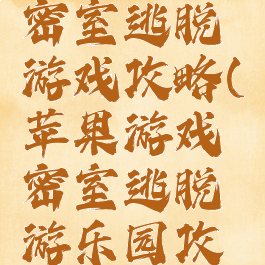 密室逃脱
游戏攻略(
苹果游戏
密室逃脱
游乐园攻